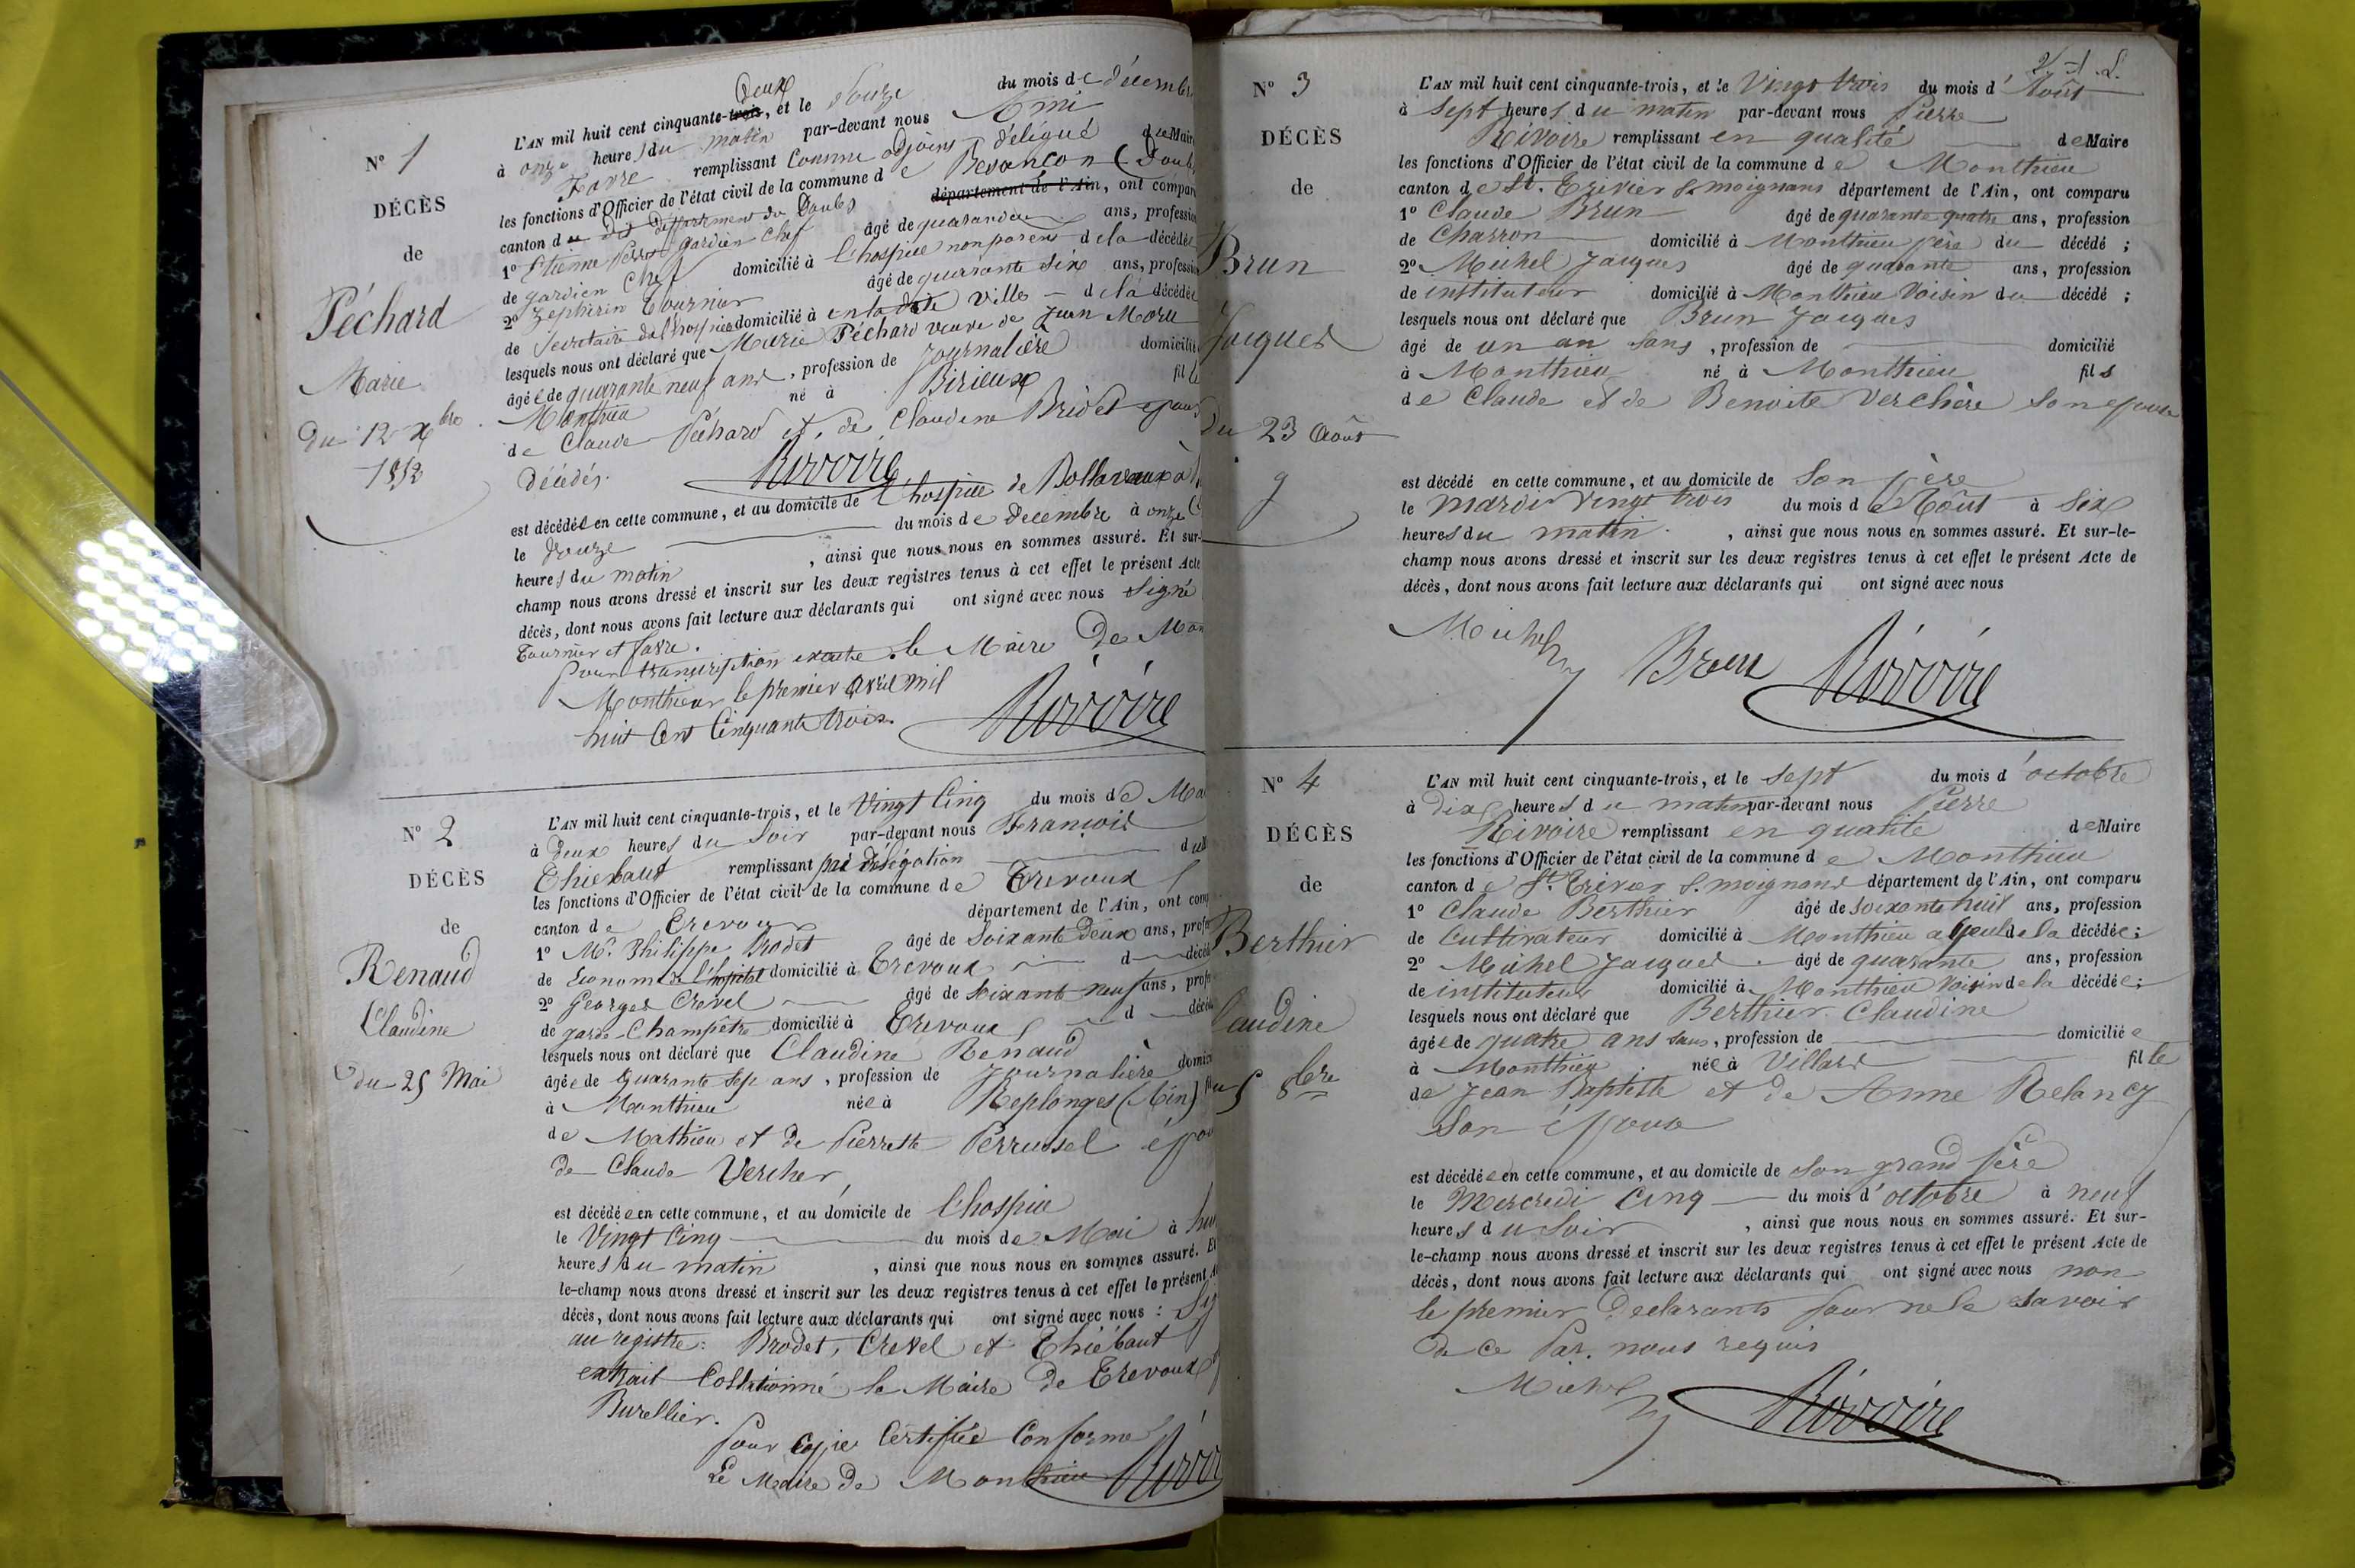 N° 1
DÉCÈS
de
Péchard
Marie
Du 12 Xbre
1852
deux
L'AN mil huit cent cinquante-trois, et le douze du mois de décembre
à onze heures du matin par-devant nous
Favre remplissant comme adjoint délégué du Maire
les fonctions d'Officier de l'état civil de la commune de Besançon (Doubs
canton du département du Doubs département de l'Ain, ont compar
1° Etienne gardien chef âgé de quarante ans, profession
de gardien chef domicilié à l'hospice non parent de la décédée
2° Zéphirin Tournier âgé de quarante six ans, profession
de Secrétaire de l'hospice domicilié à en la dite ville de la décédée
lesquels nous ont déclaré que Marie Péchard veuve de Jean
âgée de quarante neuf ans, profession de Journalière domicilié
Monthieu né à Birieux fille
de Claude Péchard et de Claudine Bridet époux
décédés. Rivoire
est décédée en cette commune, et au domicile de l'hospice de Bellevaux à
le douze du mois de décembre à onze
heures du matin , ainsi que nous nous en sommes assuré. Et sur-
champ nous avons dressé et inscrit sur les deux registres tenus à cet effet le présent Acte
décès, dont nous avons fait lecture aux déclarants qui ont signé avec nous Signé
Tournier et favre.
Pour transcription exacte. le Maire De Mon
Monthieux le premier avril mil
huit Cent Cinquante trois. Rivoire
N° 2
DÉCÈS
de
Renaud
Claudine
du 25 Mai
L'AN mil huit cent cinquante-trois, et le Vingt Cinq du mois de Ma
à Deux heures du Soir par-devant nous François
Thiebaut remplissant par délégation
les fonctions d'Officier de l'état civil de la commune de Trevoux
canton de Trevoux département de l'Ain, ont comp
1° Mr. Philippe Brodet âgé de Soixante Deux ans, profe
de Econome de l'hopital domicilié à Trevoux d décéd
2° Georges Crevel âgé de soixante neuf ans, profe
de garde-Champêtre domicilié à Trevoux d décéd
lesquels nous ont déclaré que Claudine Renaud
âgée de Quarante Sept ans, profession de Journalière domici
à Monthieu née à Replonges (Ain)
de Mathieu et de Pierrette Perrussel épou
de Claude Vercher,
est décédée en cette commune, et au domicile de l'hospice
le Vingt Cinq du mois de Mai à hui
heures du matin , ainsi que nous nous en sommes assuré. Et
le-champ nous avons dressé et inscrit sur les deux registres tenus à cet effet le présent A
décès, dont nous avons fait lecture aux déclarants qui ont signé avec nous : Sig
au registre: Brodet, Crevel et Thiébaut
extrait Collationné le Maire de Trevoux
Burellier.
Pour Copie Certifiée Conforme
Le Maire de Monthieu Rivoi
N° 3
DÉCÈS
de
Brun
Jacques
Du 23 Août
L'AN mil huit cent cinquante-trois, et le Vingt trois du mois d'Août
à Sept heures du matin par-devant nous Pierre
Rivoire remplissant en qualité de Maire
les fonctions d'Officier de l'état civil de la commune de Monthieu
canton de St. Trivier S. moignans département de l'Ain, ont comparu
1° Claude Brun âgé de quarante quatre ans, profession
de Charron domicilié à Monthieu père du décédé ;
2° Michel Jacques âgé de quarante ans, profession
de instituteur domicilié à Monthieu Voisin du décédé ;
lesquels nous ont déclaré que Brun Jacques
âgé de un an sans , profession de domicilié
à Monthieu né à Monthieu fils
de Claude et de Benoite Verchère son epouse
est décédé en cette commune, et au domicile de Son père
le mardi Vingt trois du mois d Août à Six
heures du matin , ainsi que nous nous en sommes assuré. Et sur-le-
champ nous avons dressé et inscrit sur les deux registres tenus à cet effet le présent Acte de
décès, dont nous avons fait lecture aux déclarants qui ont signé avec nous
Michel Brun Rivoire
N° 4
DÉCÈS
de
Berthier
Claudine
du 5 8bre
L'AN mil huit cent cinquante-trois, et le Sept du mois d'octobre
à dix heures du matin par-devant nous Pierre
Rivoire remplissant en qualité de Maire
les fonctions d'Officier de l'état civil de la commune de Monthieu
canton de St. Trivier S. moignans département de l'Ain, ont comparu
1° Claude Berthier âgé de soixante huit ans, profession
de Cultivateur domicilié à Monthieu ayeul de la décédée;
2° Michel Jacques âgé de quarante ans, profession
de instituteur domicilié à Monthieu Voisin de la décédée;
lesquels nous ont déclaré que Berthier Claudine
âgée de quatre ans sans , profession de domiciliée
à Monthieu née à Villars fille
de Jean Baptiste et de Anne Relancy
Son épouse
est décédée en cette commune, et au domicile de Son grand père
le Mercredi Cinq du mois d'octobre à neuf
heures du Soir , ainsi que nous nous en sommes assuré. Et sur-
le-champ nous avons dressé et inscrit sur les deux registres tenus à cet effet le présent Acte de
décès, dont nous avons fait lecture aux déclarants qui ont signé avec nous non
le premier Declarants pour ne le Savoir
de ce Par nous requis
Michel Rivoire